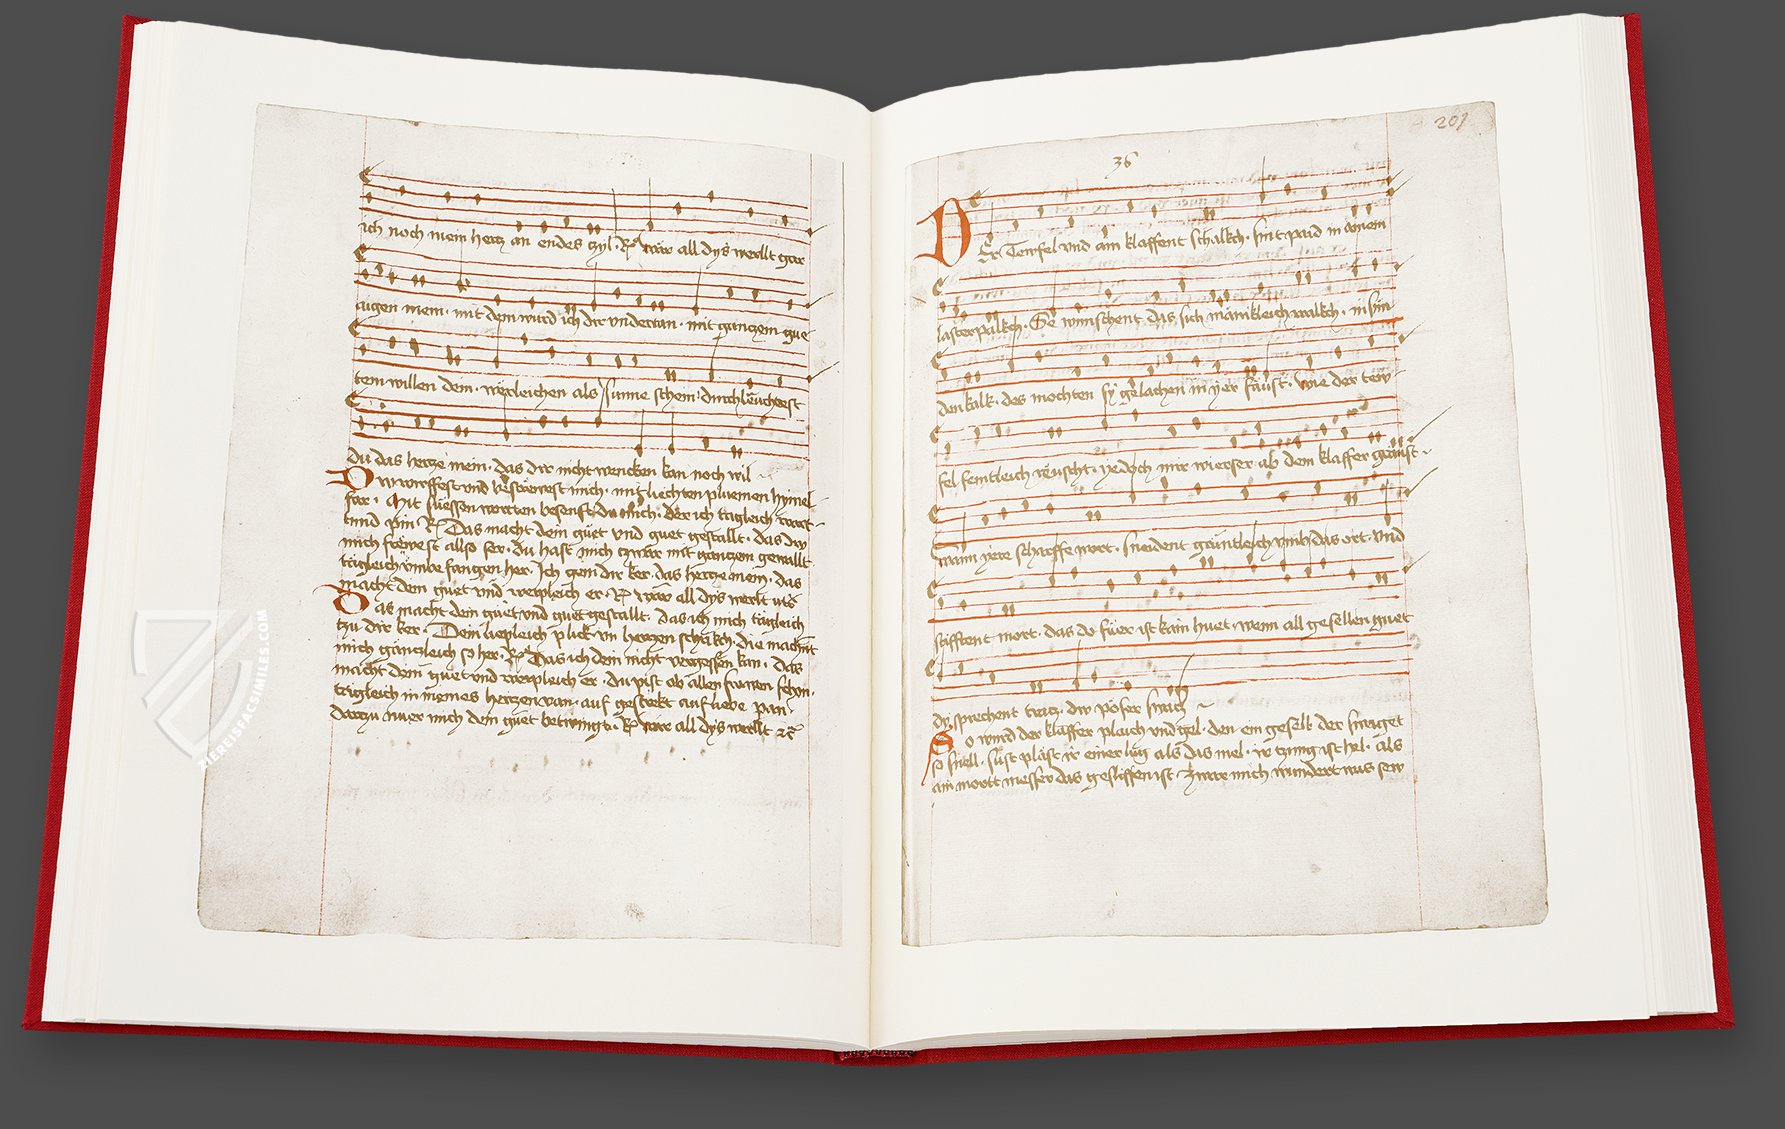 ich noch mein hertz an endes czyl · R wär all dys werllt gar
aigen mein · mit dem wurd ich dir vndertan · mit ganczem gue
tem willen dem · vergleichen als sunne schein durchleuchtest
du das hertze mein · das dir nicht wencken kan noch wil
mich · mit liechten pluemen hymel
far · Mit suessen worten
tund pin R Das macht dein güet vnd guet gestallt · das du
mich frewest allso ser · du hast mich zwar mit ganczem gewallt
tägleich vmbe fangen her · Ich gein dir ker · das hertze mein · das
macht dein guet vnd weipleich er · R wär all dys werlt
Das macht dein guet vnd guet gestallt · das ich mich tägleich
tzu dir ker · Dein liepleich plick vn hertzen schrikch · die macht
mich gänczleich so her · R Das ich dein nicht vergessen kan · das
macht dein guet vnd weipleich er · du pist ob allen frawen schon ·
tägleich in meines hertzen wan · auf gesteckt auf liebe pan ·
dartzu nuer mich dein guet betwingt · R wär all dys werllt
201
36
Der Teufel vnd ain klaffent schalkch · sint paid in ainem
laster palkch · Se wunschent das sich mänikleich walkch · in syn
den kalk · des mochten sy gelachen in yer fäust · wie der tew
fel feintleich reuscht · yedoch mir wierser ab dem klaffer grawst
wann yere scharffe wort · sneident gäntleich vmb das ort · vnd
stifftent mort · das do füer ist kain huet · wenn all gesellen guet
dy sprechent tratz · dir pöser
So wird der klaffer plaich vnd gel · den ein gesell der fraget
so snell · sust pläst er einer lug als das mel · ir tzung ist hel · als
ain mortt messer das gesliffen ist Zwar mich wundert was sew
ZIEREISFACSIMILES.COM